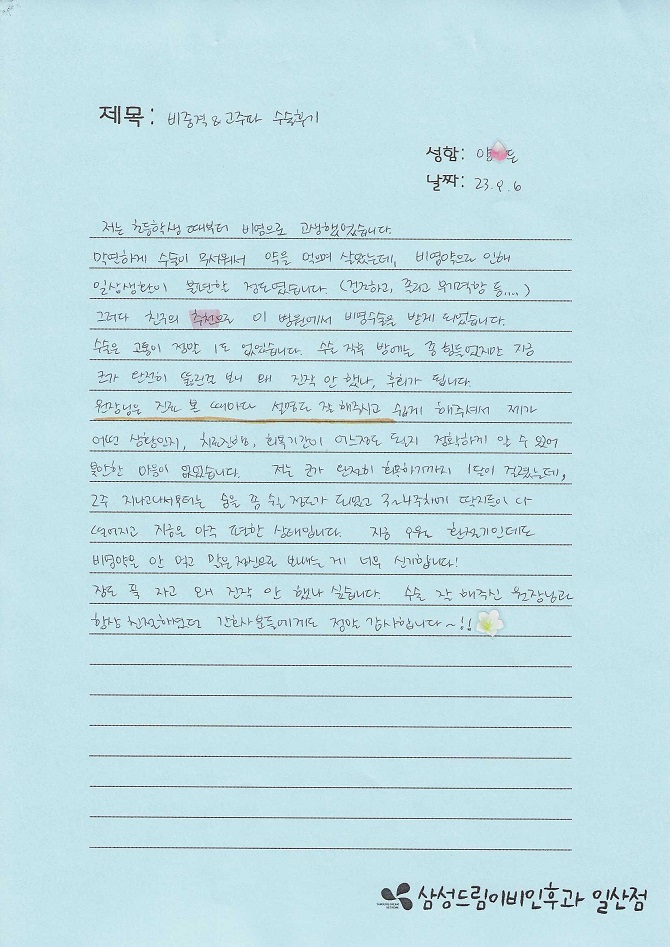 제목: 비중격 & 고주파 수술후기
성함: 양
날짜: 23. 9. 6
저는 초등학생 때부터 비염으로 고생했었습니다.
막연하게 수술이 무서워서 약을 먹으며 살았는데, 비염약으로 인해
일상생활이 불편할 정도였습니다. (건조하고, 졸리고 무기력함 등....)
그러다 친구의 추천으로 이 병원에서 비염수술을 받게 되었습니다.
수술은 고통이 정말 1도 없었습니다. 수술 직후 밤에는 좀 힘들었지만 지금
코가 완전히 뚫린걸 보니 왜 진작 안 했나, 후회가 됩니다.
원장님은 진료 본 때마다 설명도 잘 해주시고 쉽게 해주셔서 제가
어떤 상황인지, 치료방법, 회복기간이 어느정도 되는지 정확하게 알 수 있어
불안한 마음이 없었습니다. 저는 코가 완전히 회복하기까지 1달이 걸렸는데,
2주 지나고나서부터는 숨을 좀 쉴 정도가 되었고 3~4주차에 딱지들이 다
떨어지고 지금은 아주 편한 상태입니다. 지금 9월로 환절기인데도
비염약을 안 먹고 맑은 정신으로 보내는 게 너무 신기합니다!
잠도 푹 자고 왜 진작 안 했나 싶습니다. 수술 잘 해주신 원장님과
항상 친절하셨던 간호사분들에게도 정말 감사합니다~!!
삼성드림이비인후과 일산점